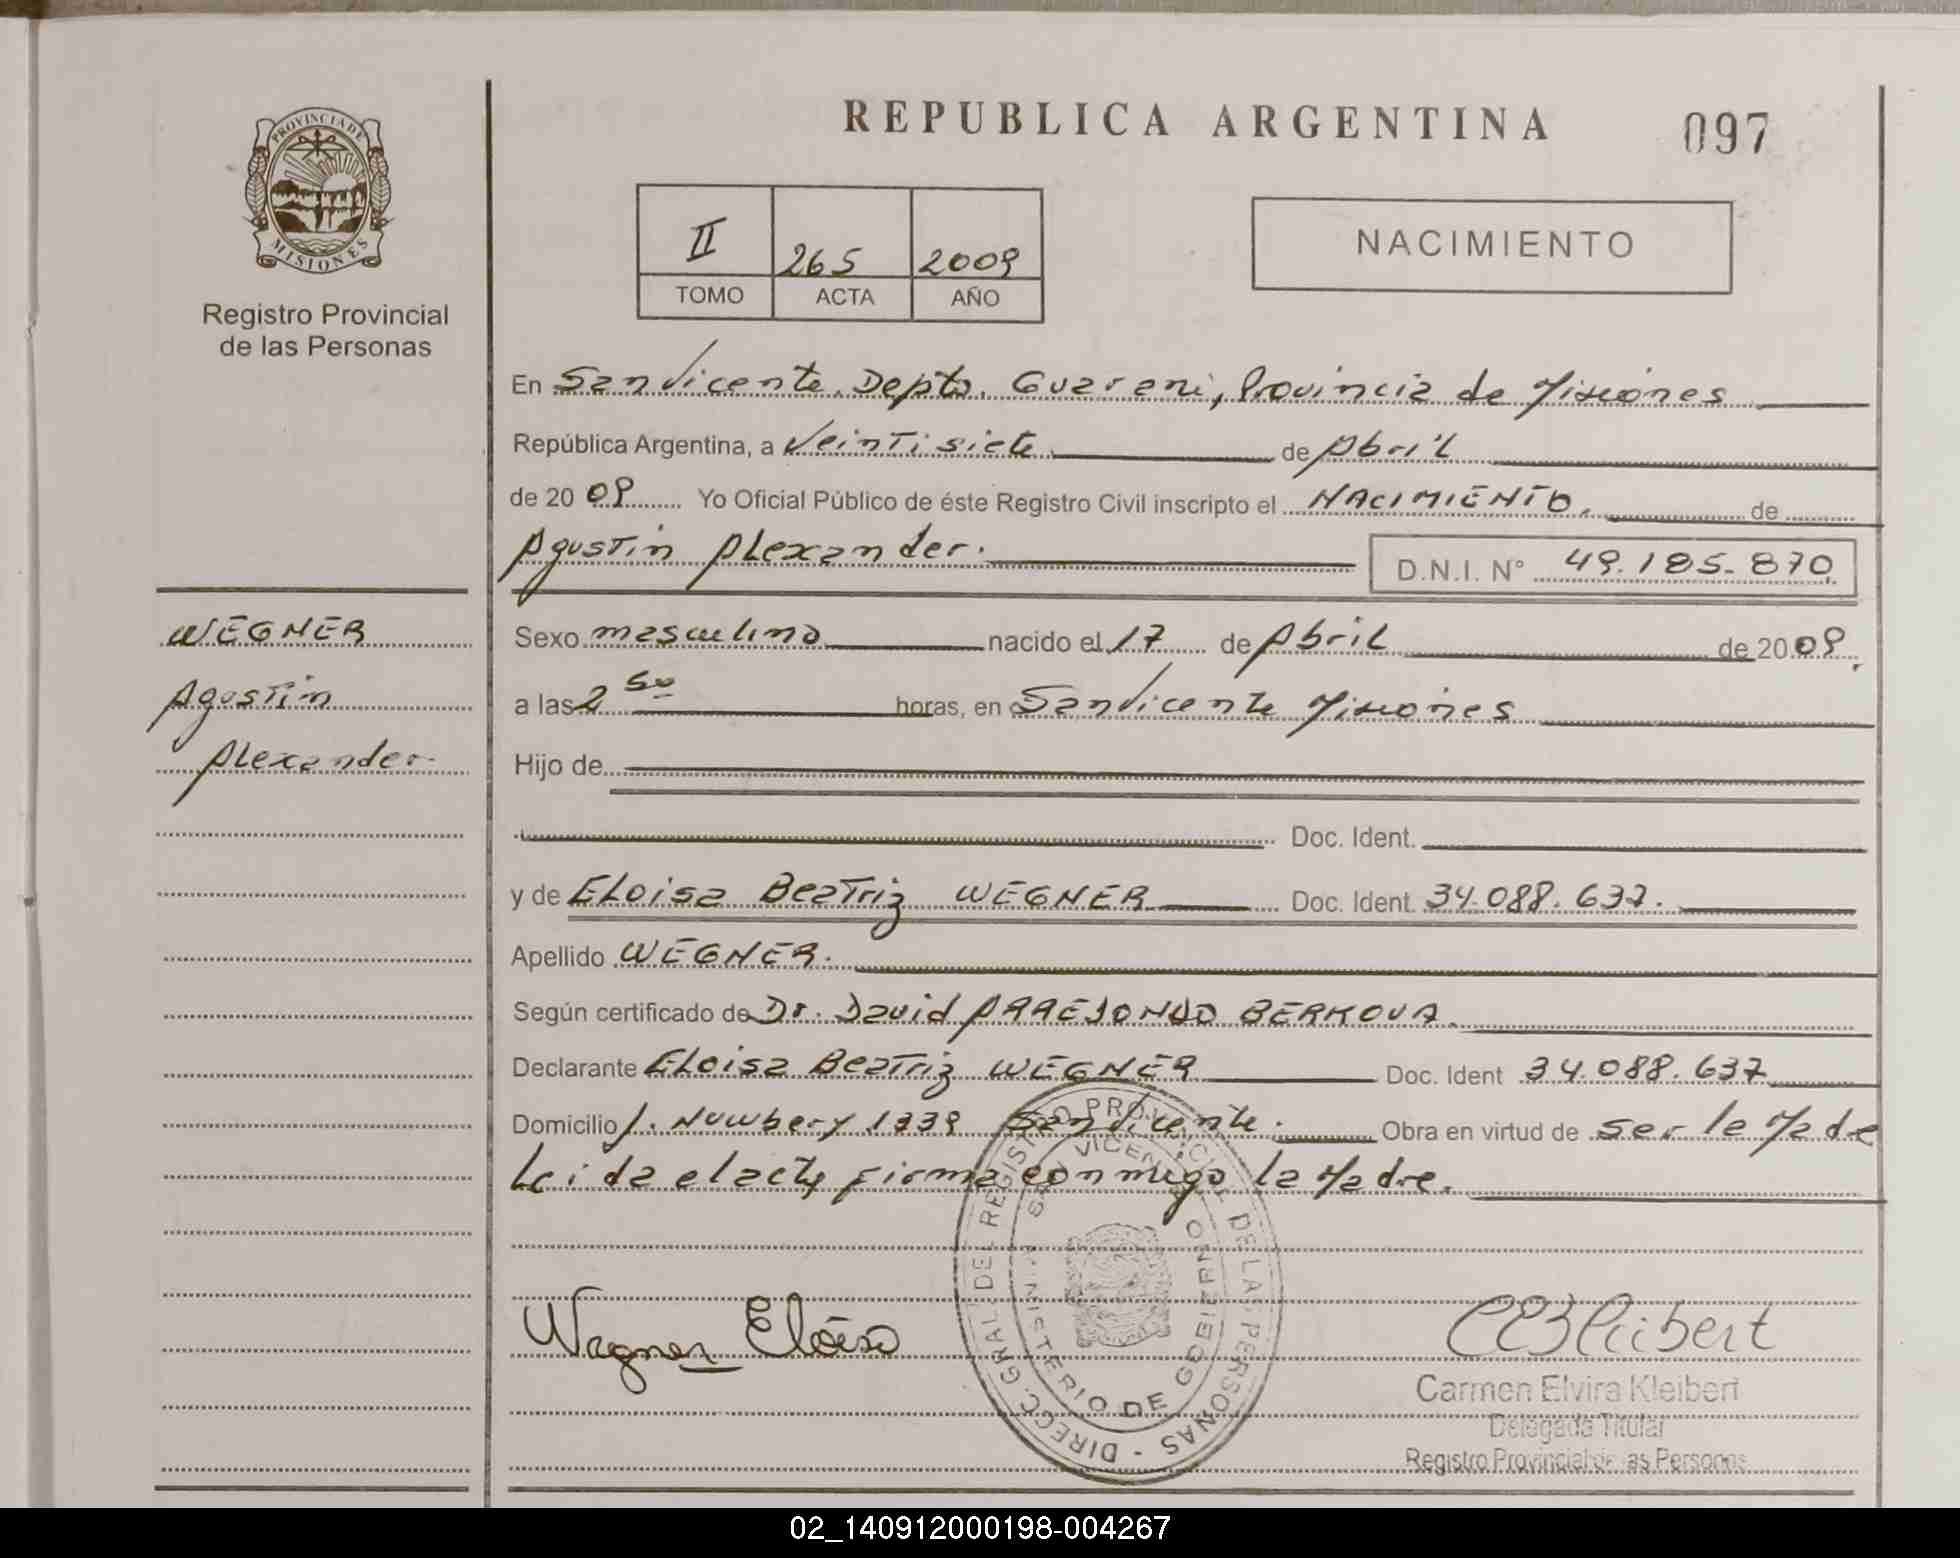 REPUBLICA ARGENTINA
097
PROVINCIA DE
MISIONES
Registro Provincial
de las Personas
II 265 2009
TOMO ACTA AÑO
NACIMIENTO
En San Vicente. Depto. Guarani, Provincia de Misiones
República Argentina, a Veintisiete de Abril
de 2009 Yo Oficial Público de éste Registro Civil inscripto el NACIMIENTO. de
Agustin Alexander.
D.N.I. N° 49.185.870
WEGNER
Agustin
Alexander
Sexo masculino nacido el 17 de Abril de 2009.
a las 2 50 horas, en San Vicente Misiones
Hijo de
Doc. Ident.
y de Eloisa Beatriz WEGNER Doc. Ident. 34.088.637.
Apellido WEGNER.
Según certificado de Dr. David ARREDONDO BERKOVA.
Declarante Eloisa Beatriz WEGNER Doc. Ident 34.088.637
Domicilio J. Newbery 1339 San Vicente. Obra en virtud de ser la Madre
Leida el acta firma conmigo la Madre.
DIRECC. GRAL. DEL REGISTRO PROVINCIAL DE LAS PERSONAS -
SAN VICENTE
MINISTERIO DE GOBIERNO
Wagner Eloisa
CEKleibert
Carmen Elvira Kleibert
Delegada Titular
Registro Provincial de las Personas
02_140912000198-004267